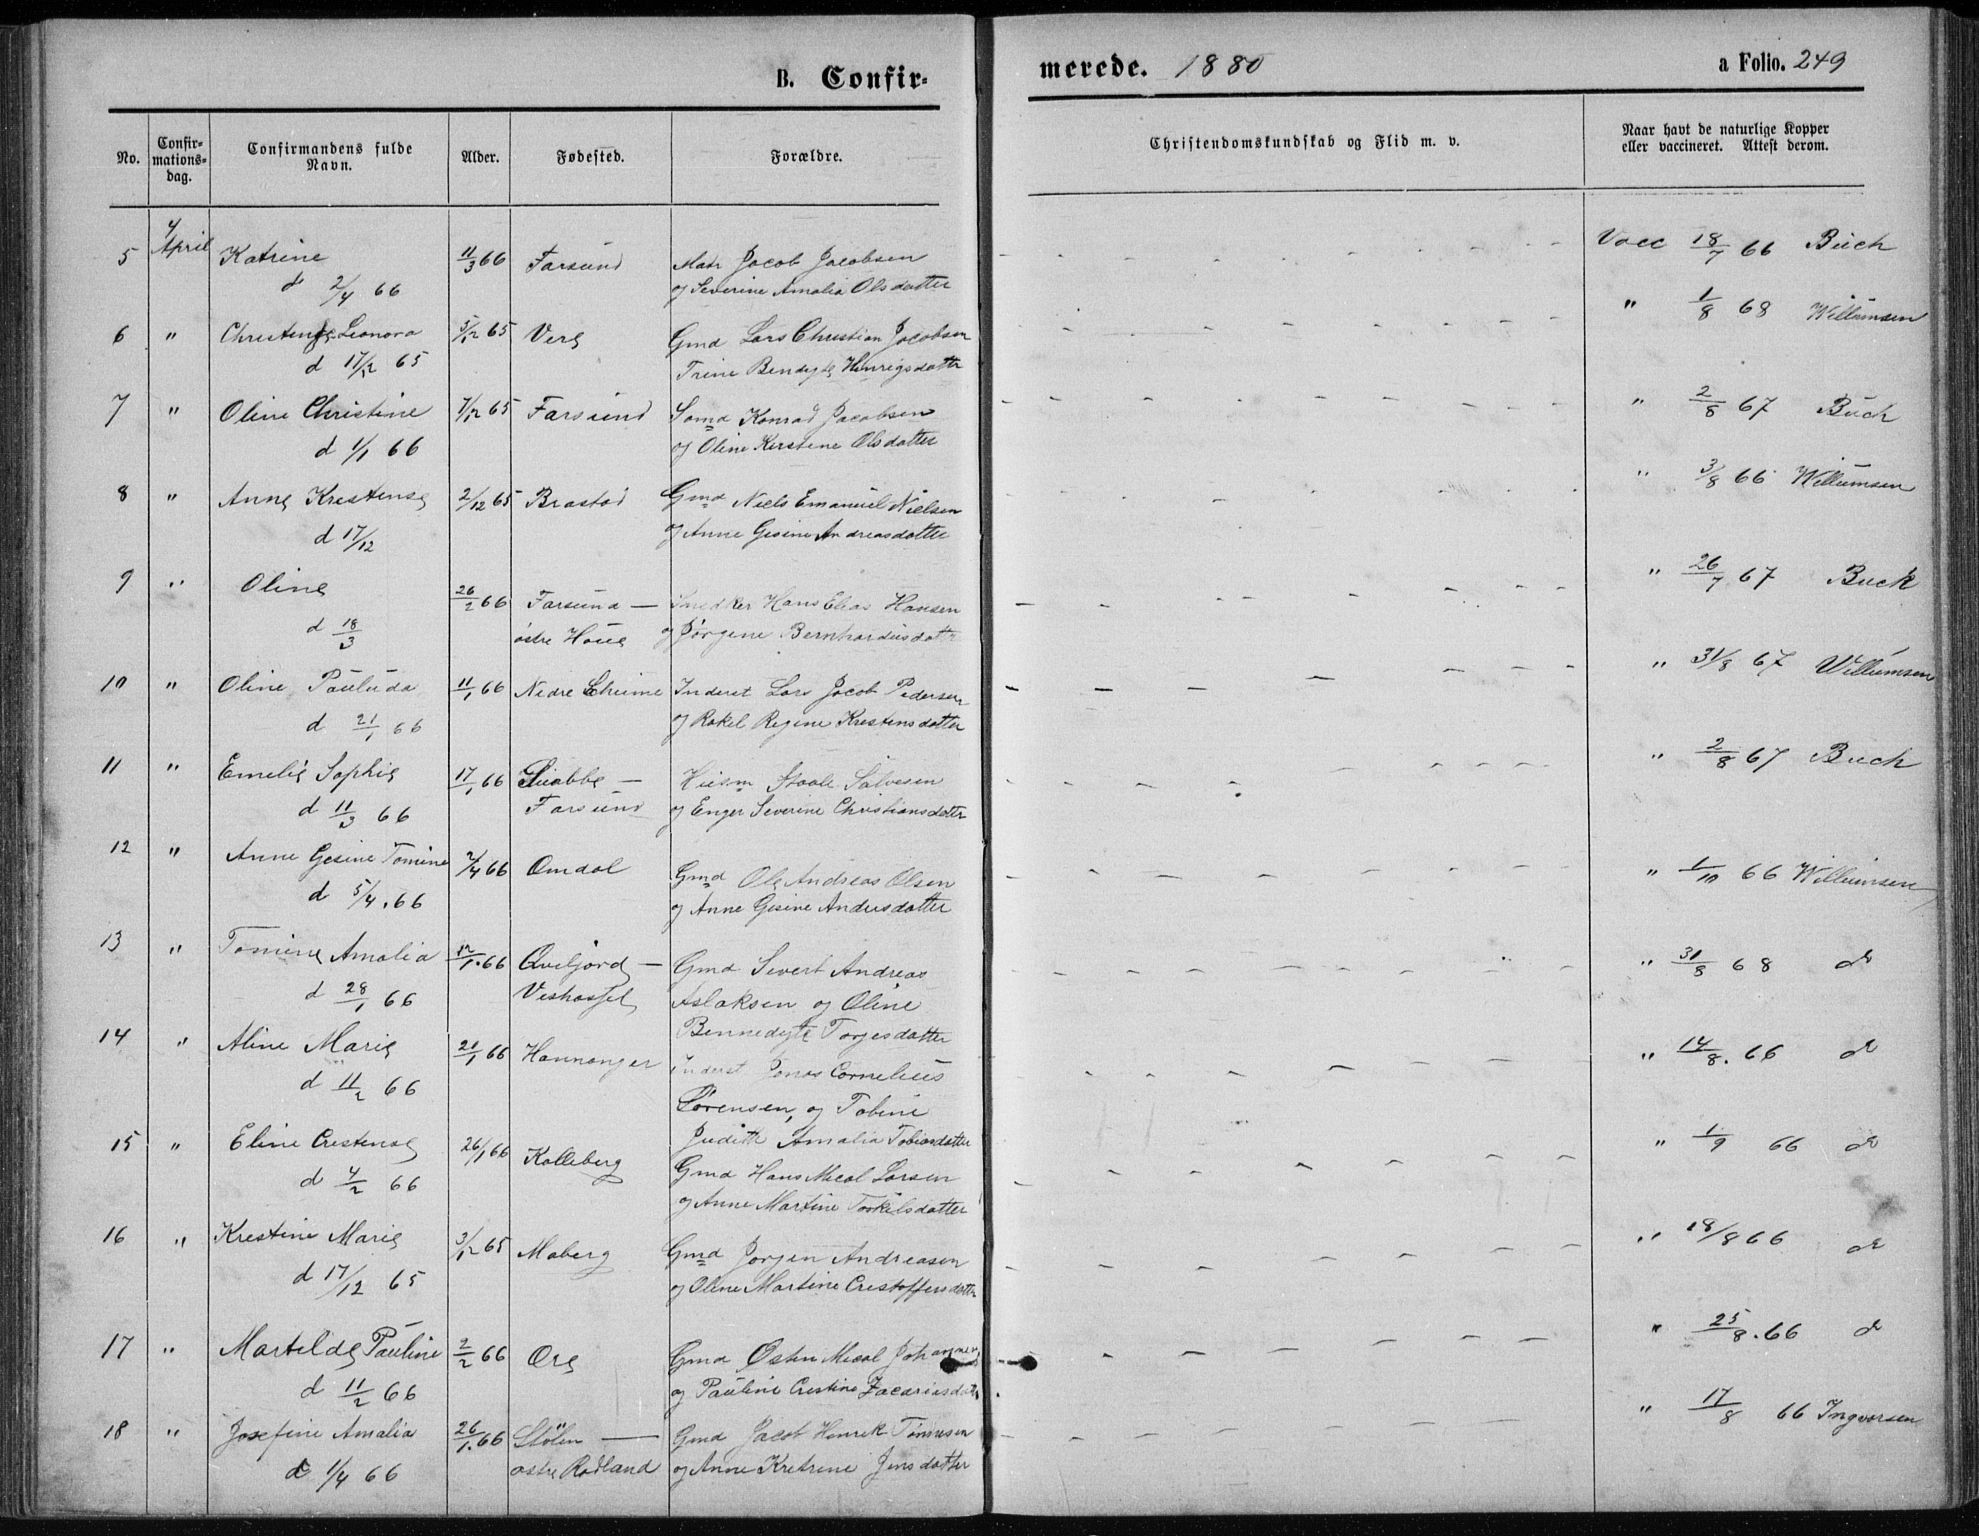 B. Confir-
merede. 1880
a Folio. 249
No.
Confir-
mations-
dag.
Confirmandens fulde
Navn.
Alder.
Fødested.
Forældre.
Christendomskundskab og Flid m. v.
Naar havt de naturlige Kopper
eller vaccineret. Attest derom.
5 4 April Katrine 11/3 66 Farsund Matr Jacob Jacobsen Vacc 18/7 66 Buch
d 2/4 66 og Severine Amalia Olsdatter
6 " Christense Leonora 5/12 65 Vere Gmd Lars Christian Jacobsen " 1/8 68 Willumsen
d 17/12 65 Trine Bendygte Henrigsdatter
7 " Oline Christine 7/12 65 Farsund Somd Konrad Jacobsen " 2/8 67 Buch
d 1/1 66 og Oline Kirstene Olsdatter
8 " Anne Krestense 2/12 65 Brastad Gmd Niels Emanuel Nielsen " 3/8 66 Willumsen
d 17/12 og Anne Gesine Andreasdatter
9 " Oline 26/2 66 Farsund — Snedker Hans Elias Hansen " 26/7 67 Buch
d 18/3 østre Houe og Jørgene Bernhardusdatter
10 " Oline Pauluda 11/1 66 Nedre Skeime Inderst Lars Jacob Pedersen " 31/8 67 Willumsen
d 21/1 66 og Rakel Regine Krestensdatter
11 " Emelie Sophie 17/1 66 Snabbe — Huusm Staale Salvesen " 2/8 67 Buch
d 11/3 66 Farsund og Enger Severine Christiansdatter
12 " Anne Gesine Tomine 2/4 66 Omdal Gmd Ole Andreas Olsen " 1/10 66 Willumsen
d 5/4. 66 og Anne Gesine Andersdatter
13 " Tomine Amalia 12/1. 66 Qveljord — Gmd Sivert Andreas " 31/8 68 do
d 28/1 66 Veshassel Aslaksen og Oline
Bennedigte Torjesdatter
14 " Aline Marie 20/1 66 Hannanger Inderst Jonas Cornelius " 14/8. 66 do
d 11/2 66 Sørensen og Tobine
Judith Amalia Tobiasdatter
15 " Eline Crestense 26/1 66 Kalleberg Gmd Hans Mical Larsen " 1/9 66 do
d 4/2 66 og Anne Martine Torkilsdatter
16 " Krestine Marie 3/12 65 Maberg Gmd Jorgen Andreasen " 18/8 66 do
d 17/12 65 og Oline Martine Crestoffersdatter
17 " Martilde Pauline 2/2 66 Ore Gmd Østen Mical Johannes " 25/8. 66 do
d 11/2 66 og Pauline Crestine Zacariasdatt
18 " Josefine Amalia 26/1. 66 Stølen — Gmd Jacob Henrik Tønnesen " 17/8 66 Ingvorsen
d 1/4 66 østre Rødland og Anne Kretrine Jensdatter